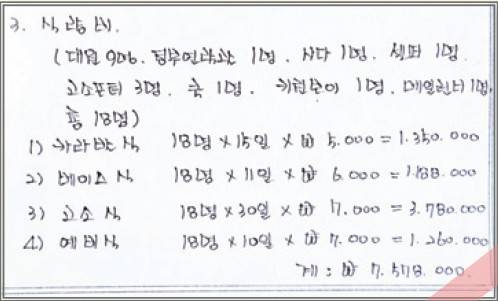 3. 식량비.
(대원 9명. 정부연락관 1명. 사다 1명. 셀파 1명.
고소포터 3명. 쿡 1명. 키친보이 1명. 메일런너 1명.
총 18명)
1) 카라반식 18명 × 15일 × ₩ 5.000 = 1.350.000
2) 베이스식 18명 × 11일 × ₩ 6.000 = 1.188.000
3) 고소식 18명 × 30일 × ₩ 7.000 = 3.780.000
4) 예비식 18명 × 10일 × ₩ 7.000 = 1.260.000
계 : ₩ 7.578.000.